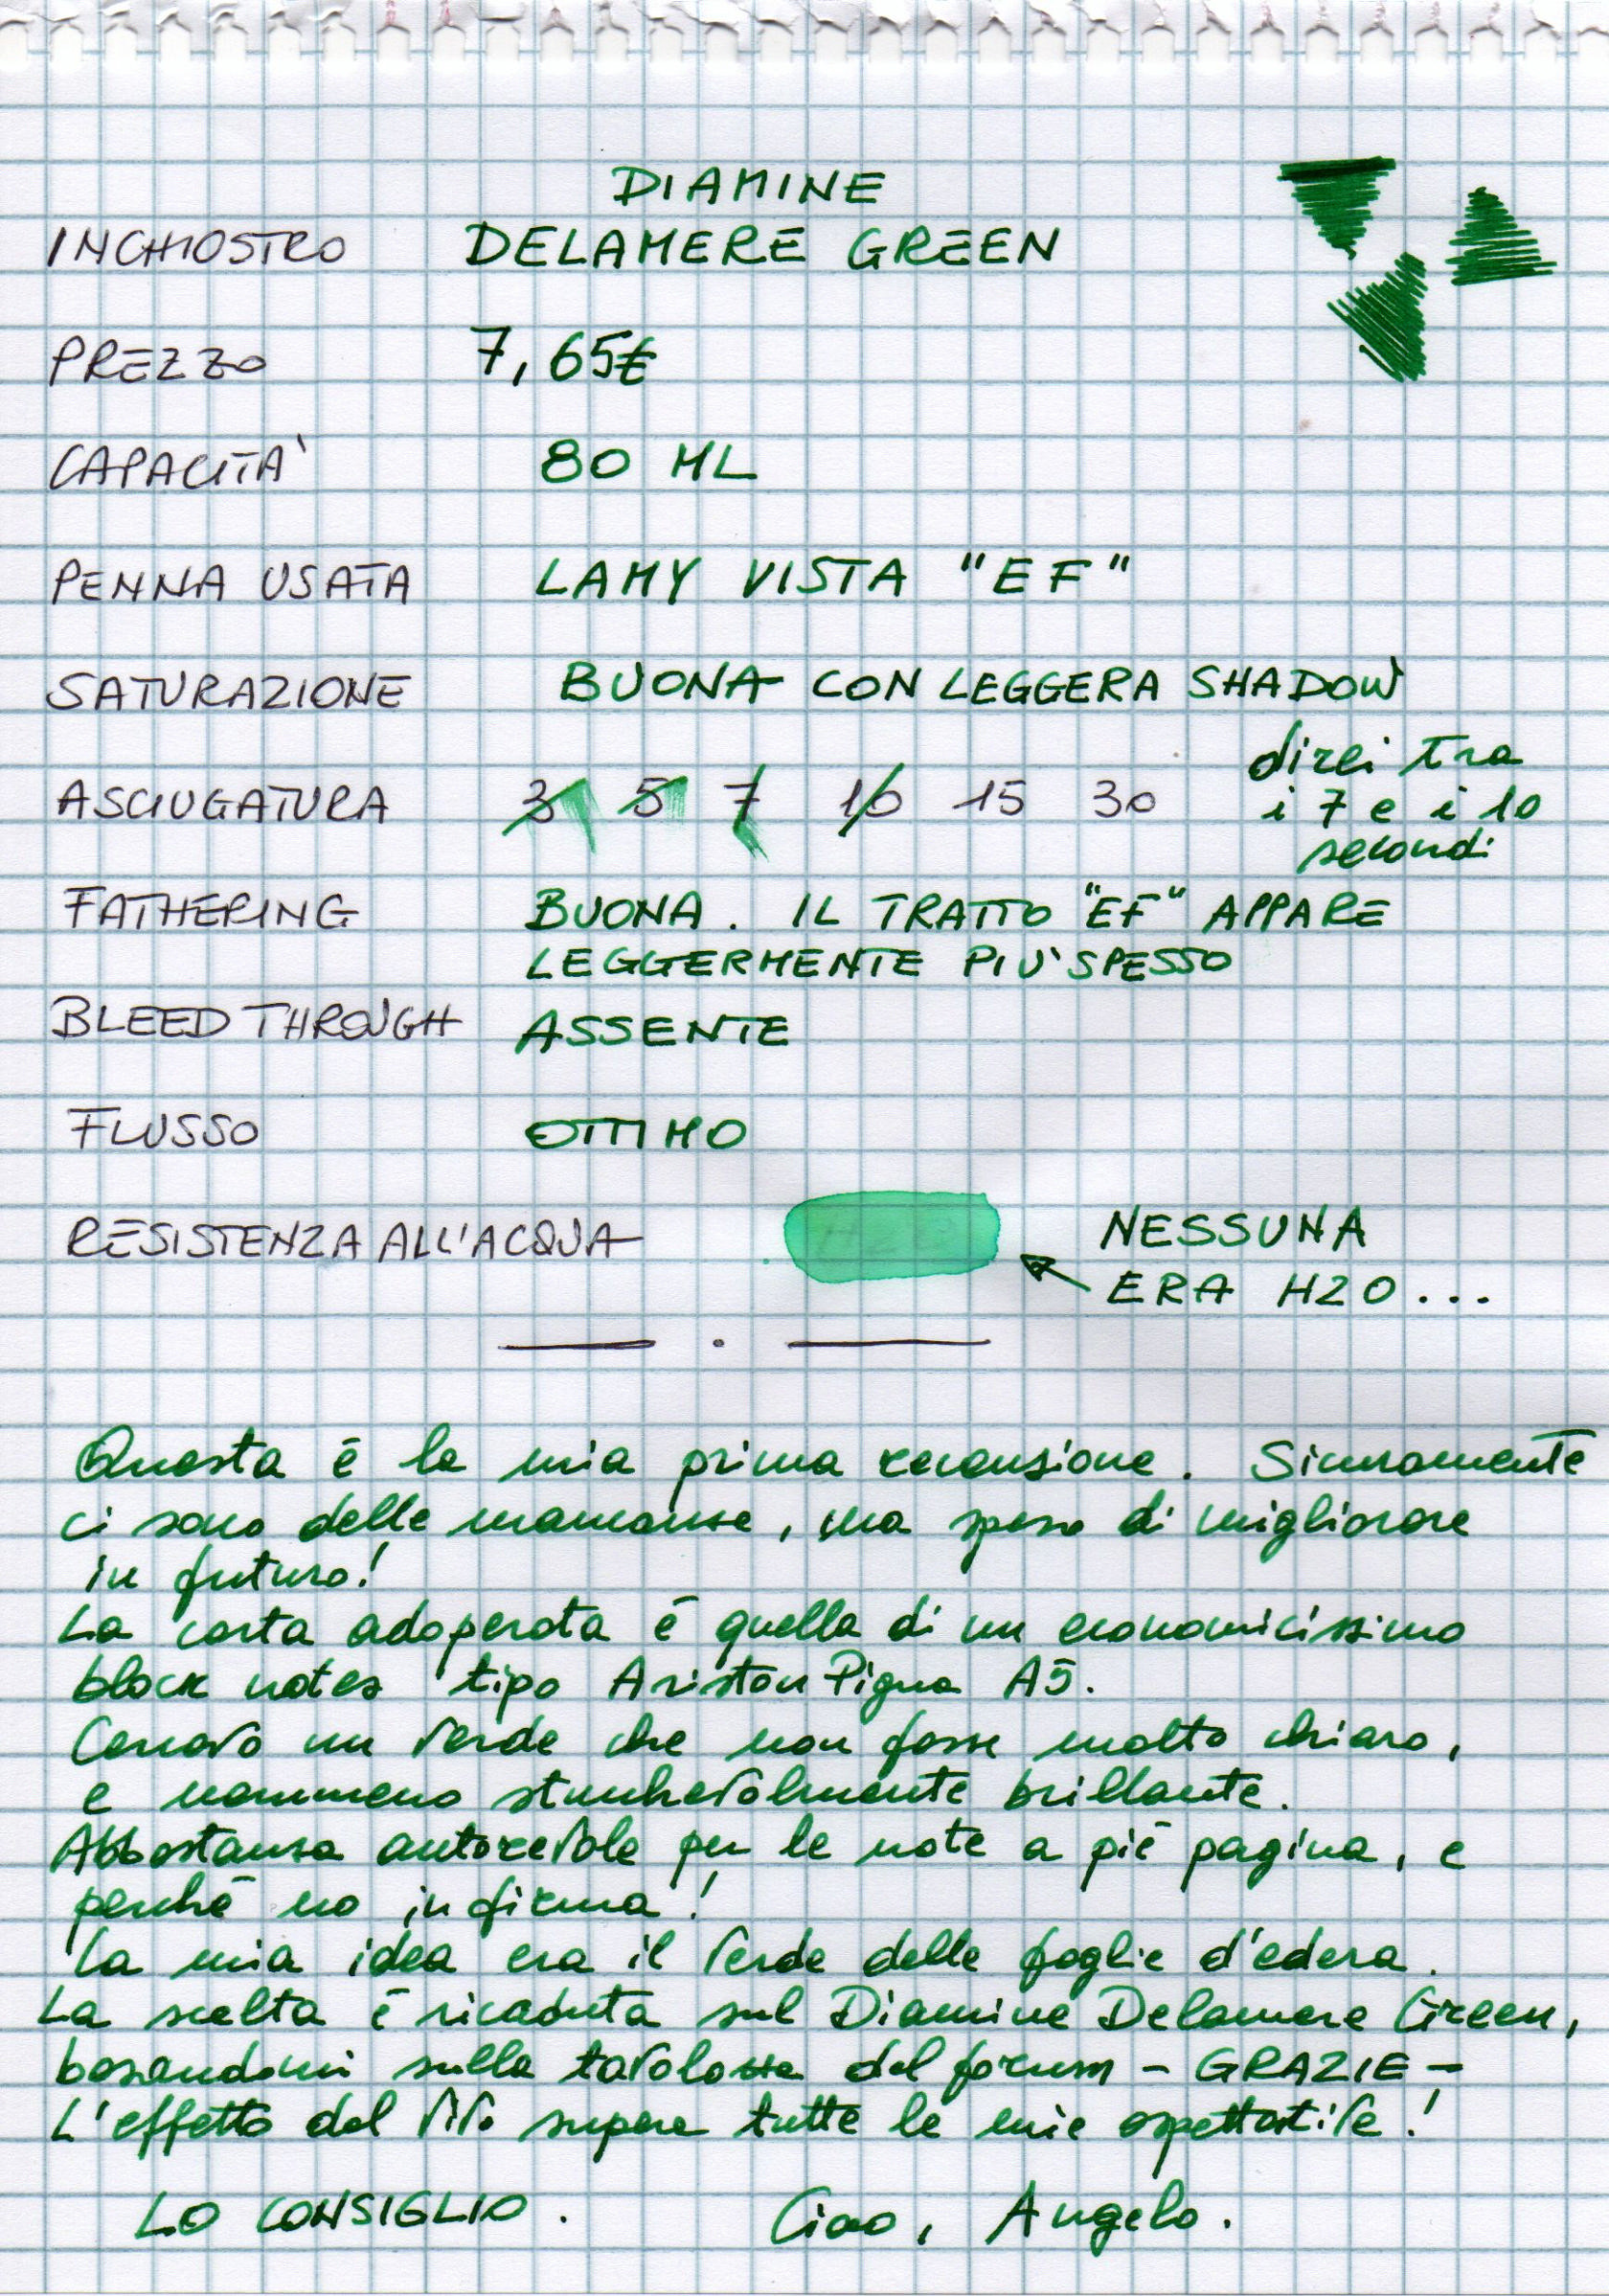 DIAMINE
INCHIOSTRO DELAMERE GREEN
PREZZO 7,65€
CAPACITA' 80 ML
PENNA USATA LAMY VISTA "EF"
SATURAZIONE BUONA CON LEGGERA SHADOW
ASCIUGATURA 3 5 7 10 15 30 direi tra
i 7 e i 10
secondi
FATHERING BUONA. IL TRATTO "EF" APPARE
LEGGERMENTE PIU' SPESSO
BLEED THROUGH ASSENTE
FLUSSO OTTIMO
RESISTENZA ALL'ACQUA NESSUNA
ERA H2O...
Questa è la mia prima recensione. Sicuramente
ci sono delle mancanze, ma spero di migliorare
in futuro!
La carta adoperata è quella di un economicissimo
block notes tipo Ariston Pigna A5.
Cercavo un verde che non fosse molto chiaro,
e nemmeno stucchevolmente brillante.
Abbastanza autorevole per le note a piè pagina, e
perché no in firma!
La mia idea era il verde delle foglie d'edera.
La scelta è ricaduta sul Diamine Delamere Green,
basandomi sulla tavolozza del forum - GRAZIE -
L'effetto dal vivo supera tutte le mie aspettative!
LO CONSIGLIO. Ciao, Angelo.